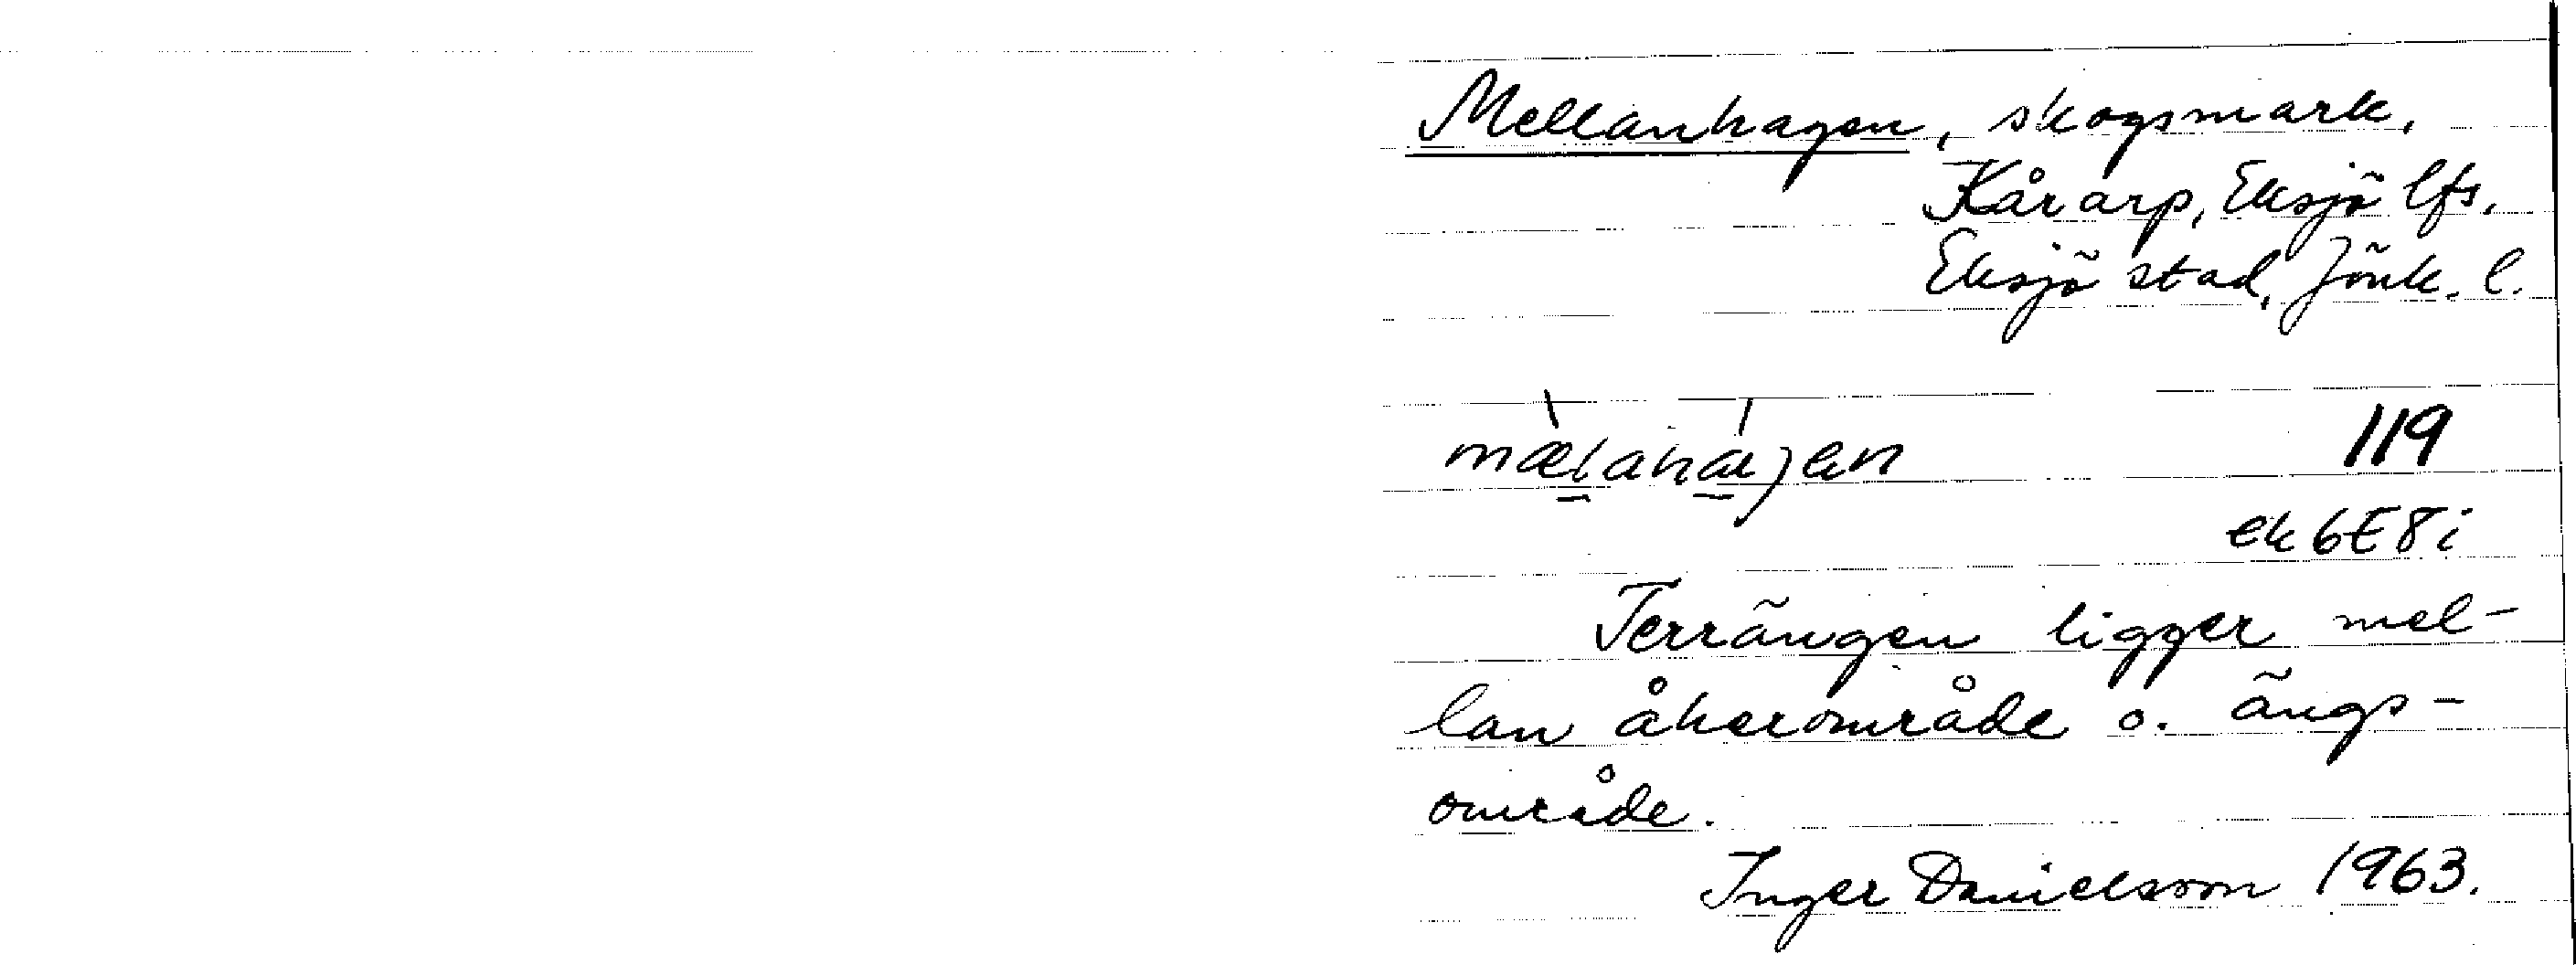 Mellanhagen, skogsmark,
Kårarp, Eksjö lfs.
Eksjö stad, Jönk. l.
mæ̀lahájen 119
ek 6E8i
Terrängen ligger mel-
lan åkerområde o. ängs-
område.
Inger Danielsson 1963.